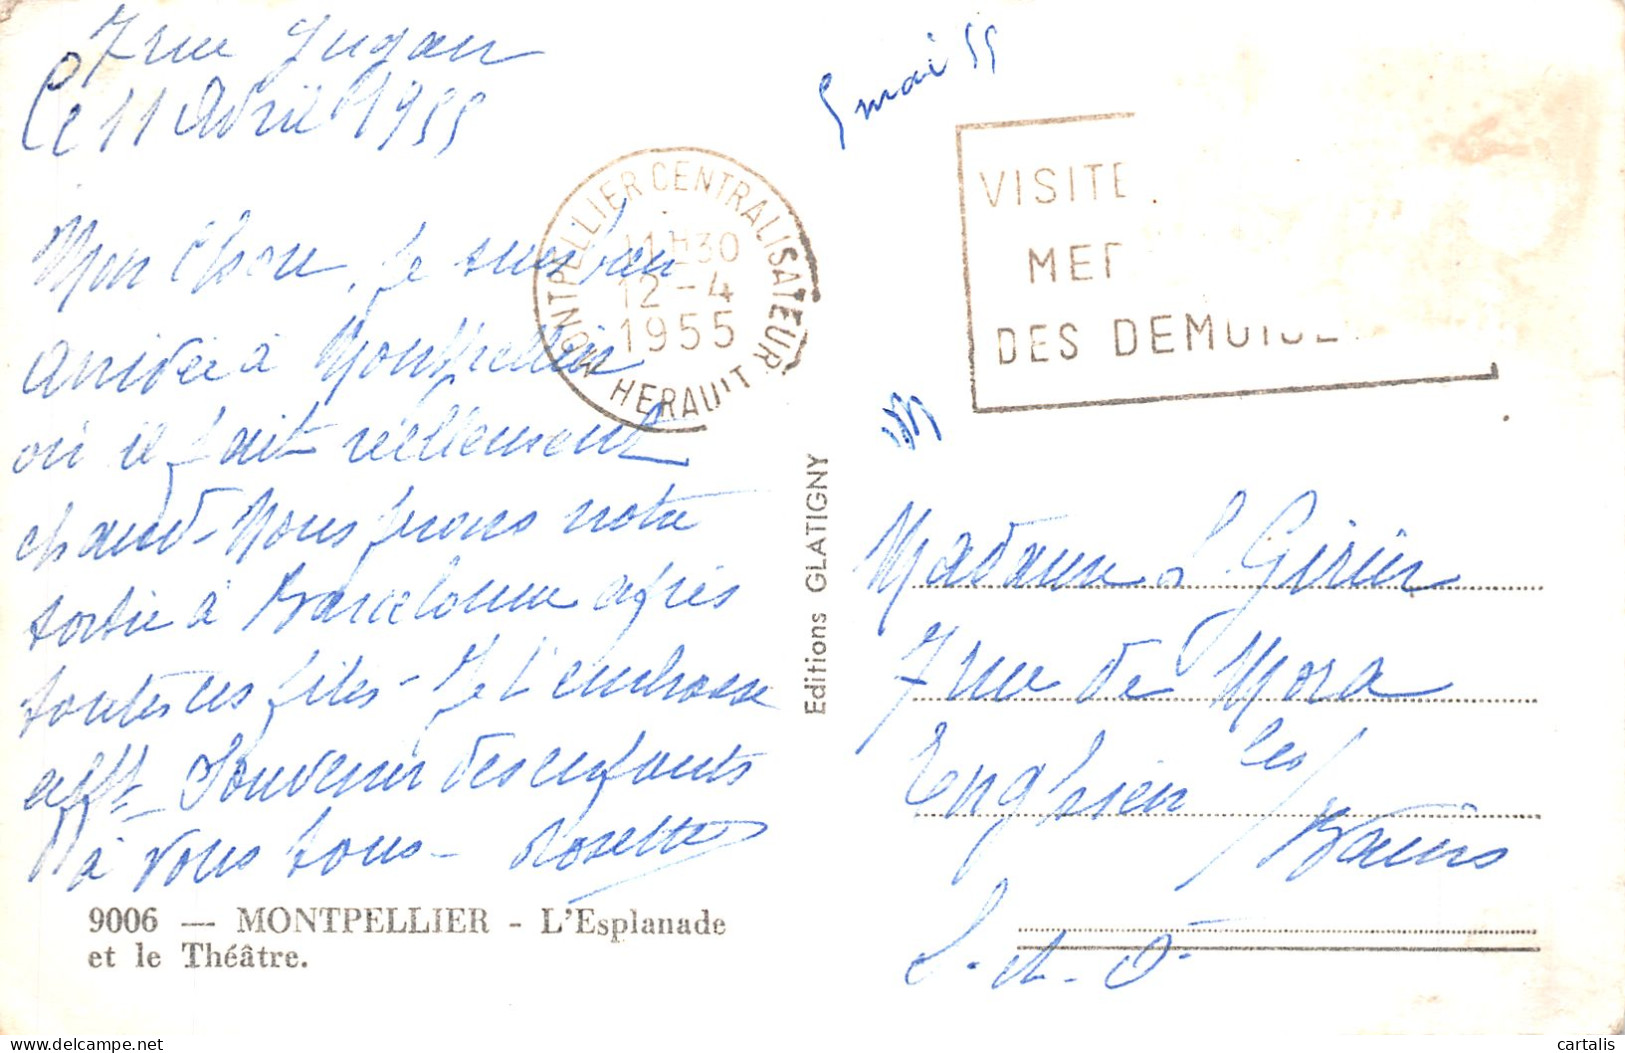 7 rue Jugan
Le 11 Avril 1955
Mon Chou, Je suis bien
arrivée à Montpellier
où il fait réellement
chaud - Nous ferons notre
sortie à Barcelonne après
toutes ces fêtes - Je t'embrasse
afft - Souvenir des enfants
à vous tous - Rosette
9006 — MONTPELLIER - L'Esplanade
et le Théâtre.
MONTPELLIER CENTRALISATEUR
11H30
12-4
1955
HERAULT
Editions GLATIGNY
5 mai 55
VISITE
MER
DES DEMOISEL
Madame
7 rue de Mora
Enghien les
Bains
S. et. O.
cartalis